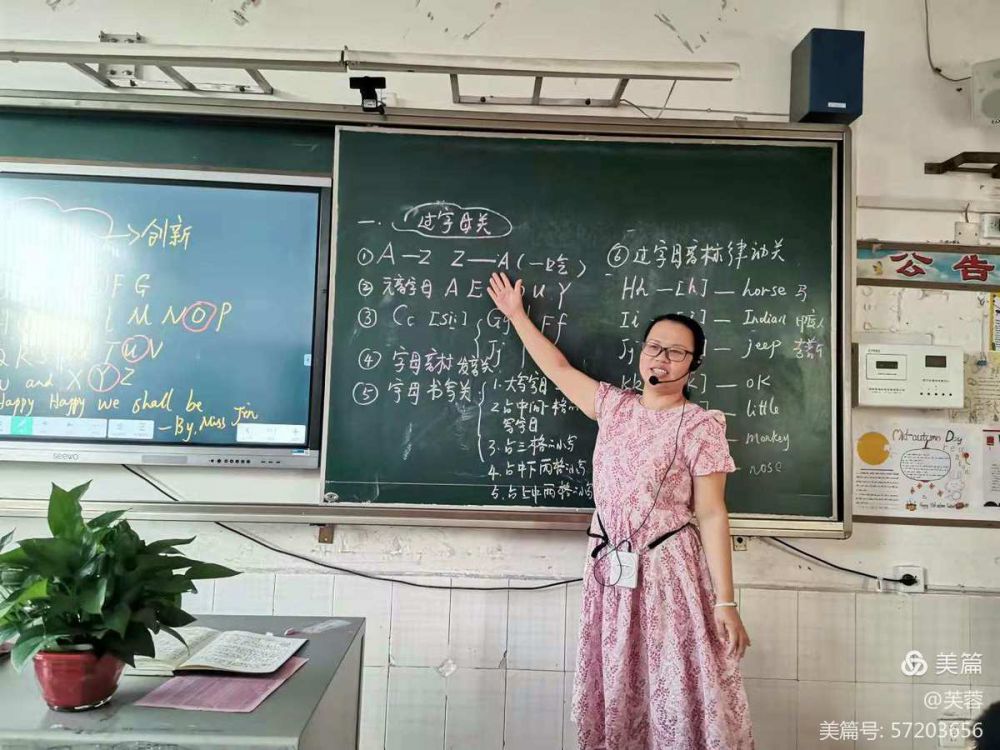 创新
F G
M N O P
T U V
and X Y Z
Happy Happy we shall be
—By, Miss Jin
seewo
一. 过字母关
① A—Z Z—A (一口气)
② 元音字母 A E U Y
③ Cc [si:] G Ff
Jj
④ 字母音标发音关
⑤ 字母书写关
1. 大写字母
2. 占中间一格
写字母
3. 占三格小写
4. 占中下两格小写
5. 占上中两格小写
⑥ 过字母音标律动关
Hh—[h]—horse 马
Ii — i]— Indian
Jj — jeep
Kk k]— OK
little
monkey
nose
公告
Mid-autumn Day
美篇
@芙蓉
美篇号: 57203656